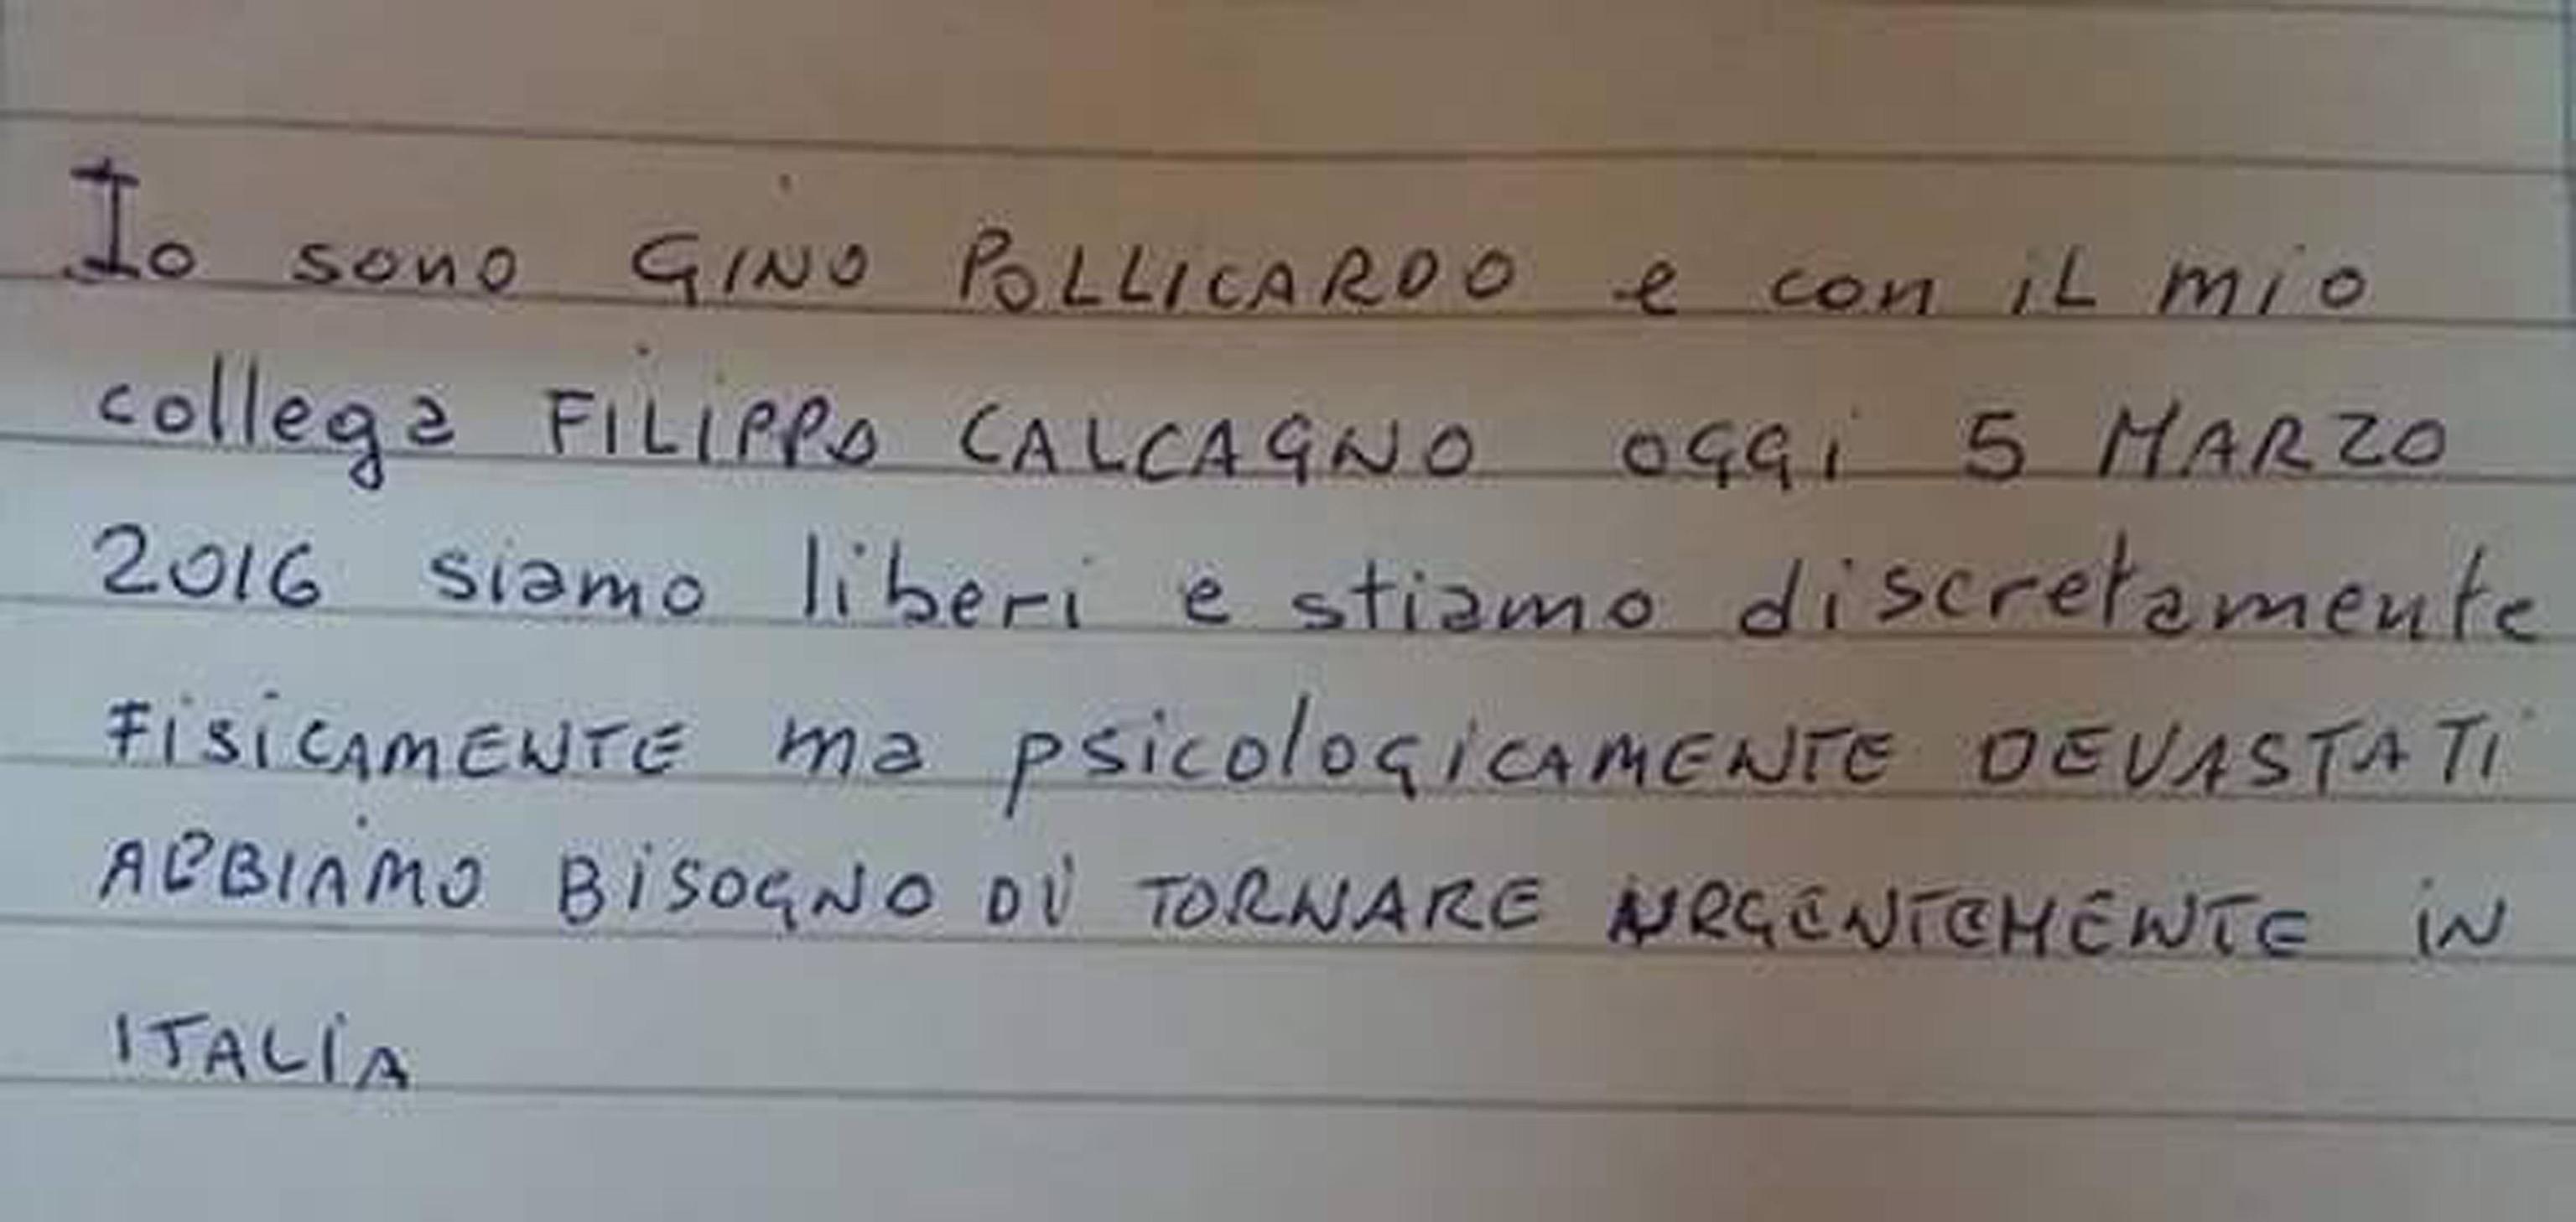 Io sono GINO POLLICARDO e con il mio
collega FILIPPO CALCAGNO OGGi 5 MARZO
2016 siamo liberi e stiamo discretamente
FisiCAMENTE ma psicologiCAMENTE DEVASTATI
ABBIAMO BiSOGNO Di TORNARE URGENTEMENTE iN
ITALIA